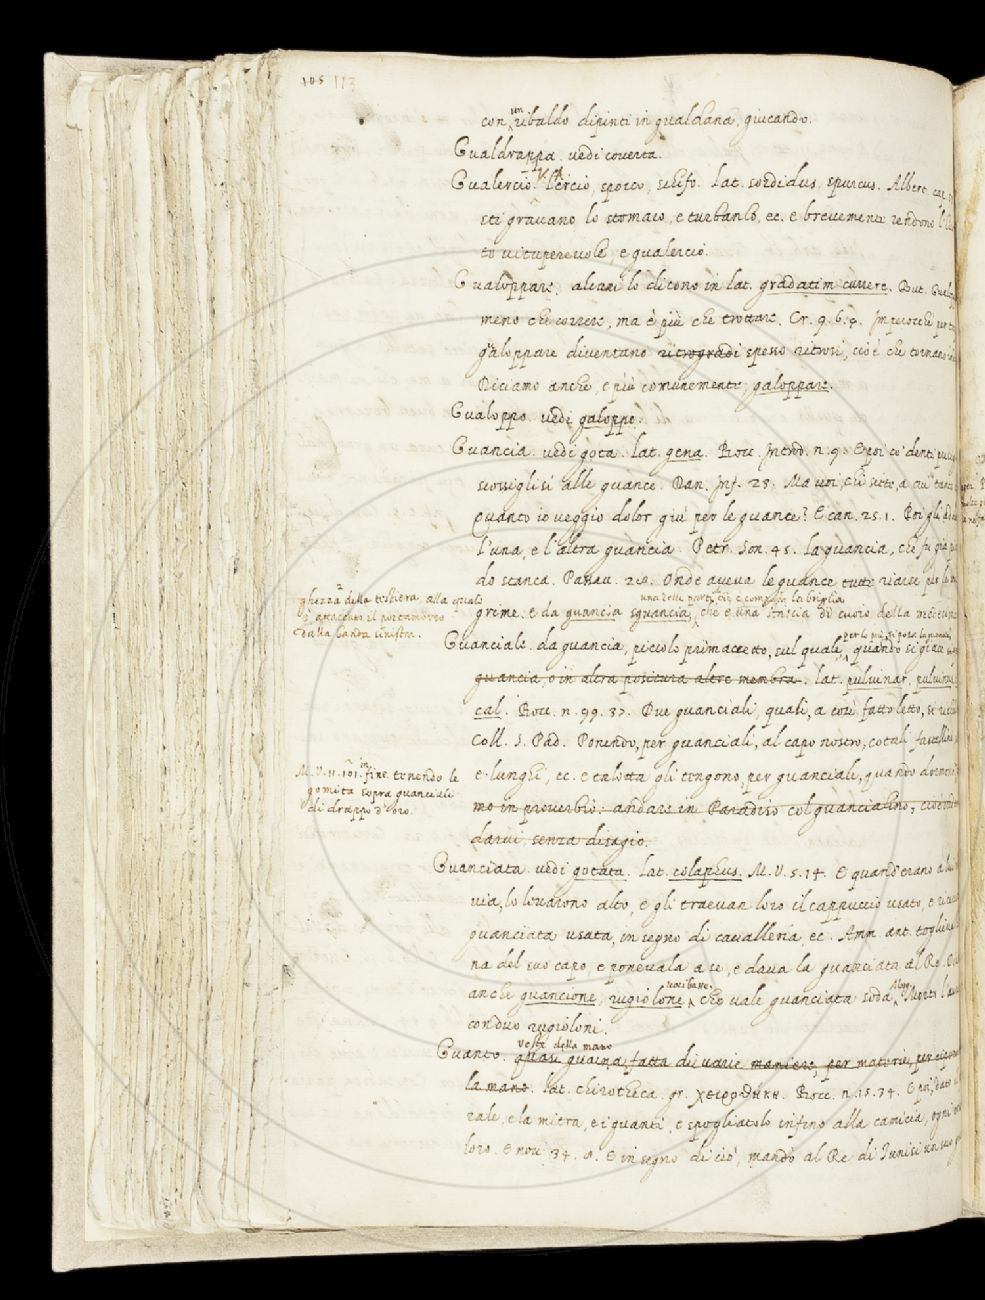 105 113
con un ribaldo dipinti in gualdana, giucando.
Gualdrappa. vedi couerta.
Gualercio. V. A. Lercio, sporco, schifo. lat. sordidus, spurcus. Albert. cap.
sti grauano lo stomaco, e turbanlo, ec. e breuemente rendono
to uituperevole, e gualercio.
Gualoppare. alcuni lo dicono in lat. gradatim currere. But.
meno che correre, ma è più che trottare. Cr. 9. 6. 4. Imperocchè per
galoppare diventano retrogradi spesso ritrosi, cioè che tornano
Diciamo anche, e più comunemente, galoppare.
Gualoppo. vedi galoppo.
Guancia. vedi gota. lat. gena. Bocc. Introd. n. 9. E poi co' denti
scossiglisi alle guance. Dan. Inf. 23. Ma voi, chi siete, a cui tanto
Quanto io veggio dolor giù per le guance? E can. 25. 1. Poi gli
l'una, e l'altra guancia. Petr. Son. 45. la guancia, che fu già
do stanca. Passau. 28. Onde aueua le guance tutte riarse per le
ghezza della testiera, alla quale
è attaccato il portamorso
dalla banda sinistra.
una delle parti, di che è composta la briglia
grime. E da guancia sguancia, che è una striscia di cuoio della medesima
Guanciale. da guancia, piccolo primaccetto, sul quale, per lo più si posa la guancia, quando si giace
guancia, o in altra positura altre membra. lat. pulvinar,
cal. Bocc. n. 99. 37. Due guanciali, quali, a così fatto letto, si
Coll. S. Pad. Ponendo, per guanciali, al capo nostro, cotali fastellini
M. V. 11. 101. in fine. tenendo le
gomita sopra guanciali
di drappo d'oro.
e lunghi, ec. e talotta gli tengono, per guanciale, quando
mo in proverbio: andare in Paradiso col guancialino,
darui, senza disagio.
Guanciata. vedi gotata. lat. colaphus. M. V. 5. 14. E quand'erano a
via, lo leuarono alto, e gli traeuan loro il cappuccio usato, e
guanciata usata, in segno di cavalleria, ec. Amm. ant.
na del suo capo, e poneuala a se, e daua la guanciata al Re.
anche guancione, rugiolone, voci basse, che vale guanciata soda. Morg.
con duo rugioloni.
Guanto. veste della mano quasi guaina, fatta di varie maniere, per materie,
la mano. lat. chirotheca. gr. χειροθήκη. Bocc. n. 15. 34. E poi,
rale, e la mitra, e i guanti, e spogliatolo infino alla camicia, ogni
loro. E nou. 34. 8. E in segno di ciò, mandò al Re di Tunisi un suo